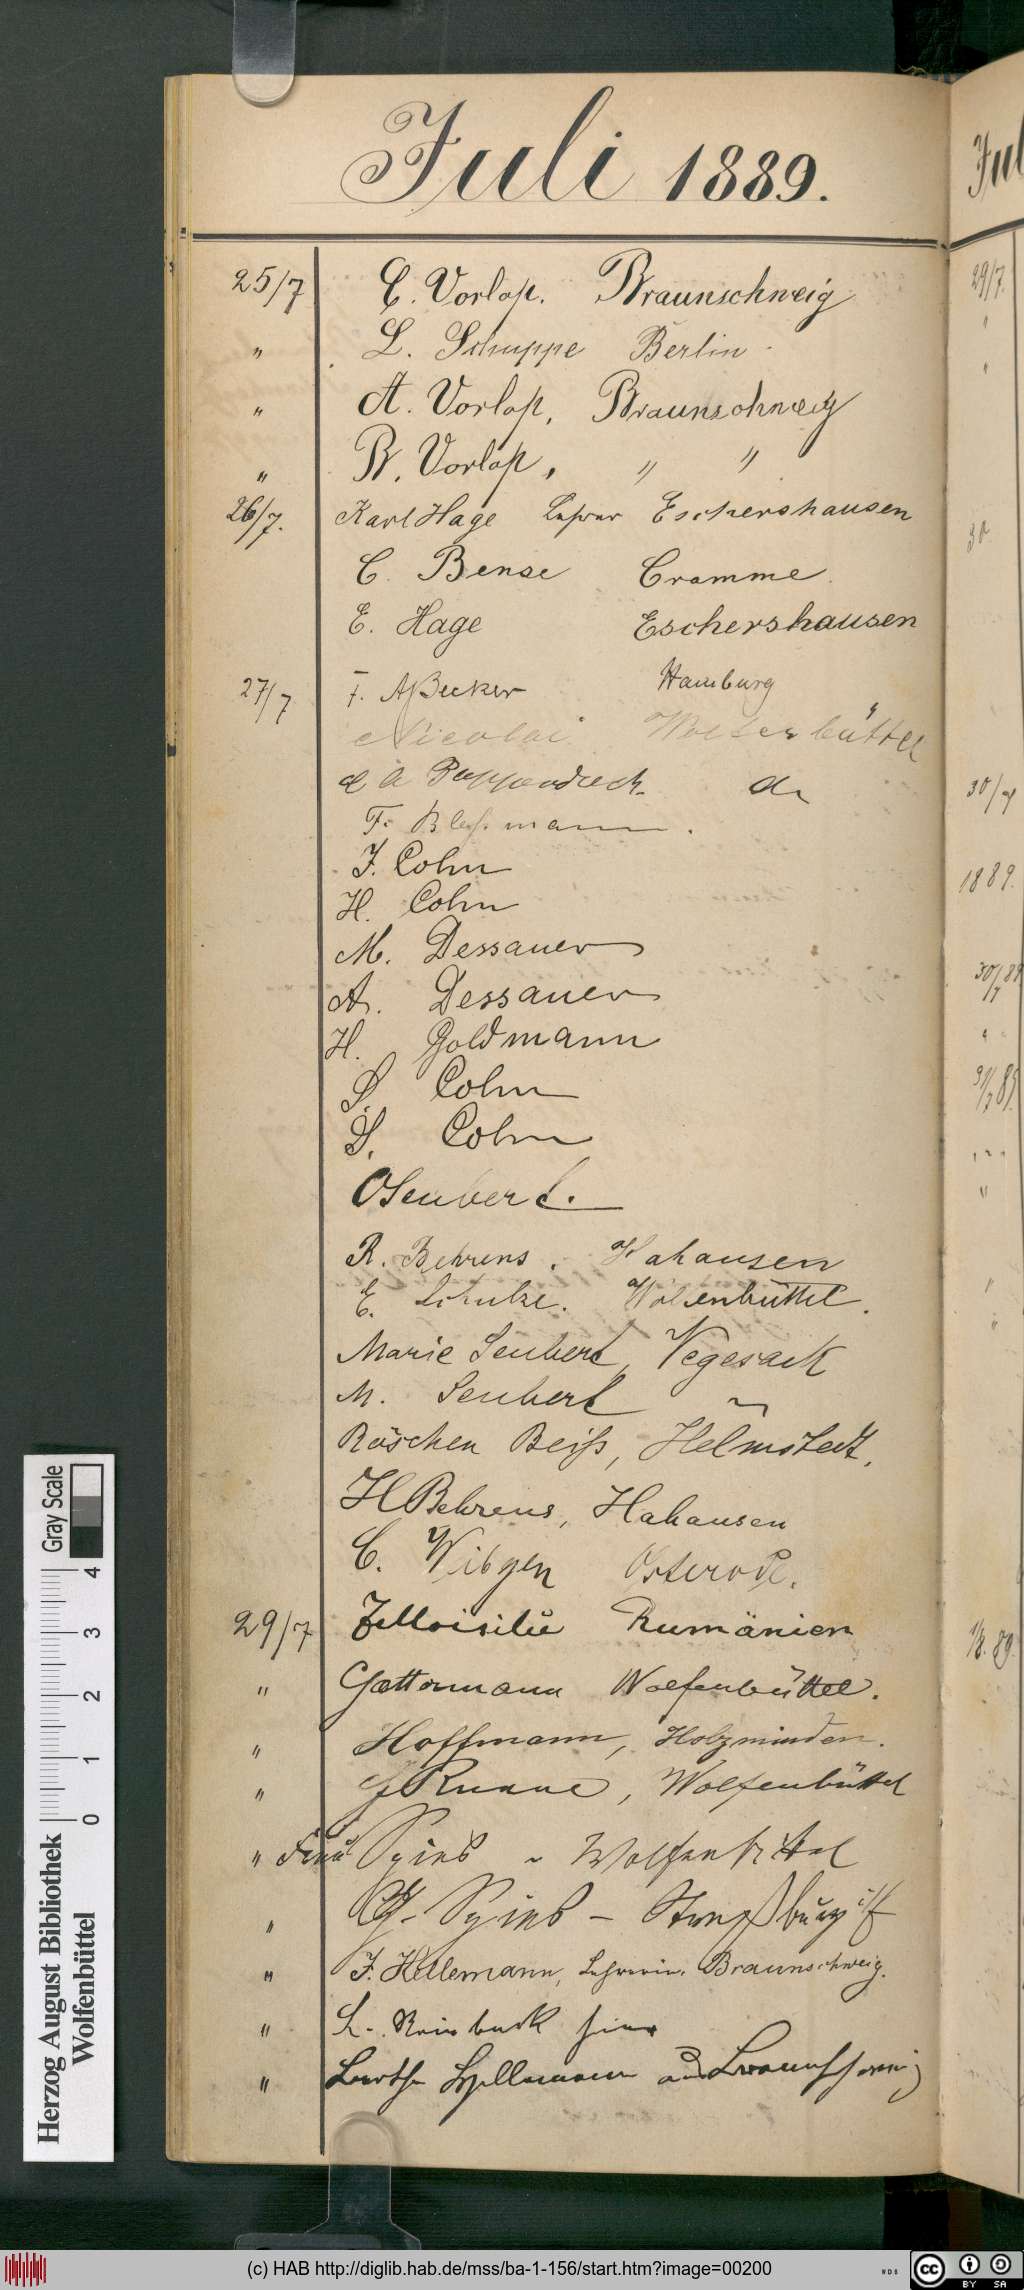 Juli 1889.
25/7 C. Vorlop. Braunschweig
" L. Schuppe Berlin
" A. Vorlop, Braunschweig
" W. Vorlop, " "
26/7. Karl Hage Lehrer Eschershausen
C. Bense Cramme.
E. Hage Eschershausen
27/7 F. A Becker Hamburg
Nicolai Wolfenbüttel
do
F. mann.
J. Cohn
H. Cohn
M. Dessauer
A. Dessauer
H. Goldmann
S. Cohn
S. Cohn
O Seubert.
R. Behrens. Hahausen
E. Schulze. Wolfenbüttel.
Marie Seubert, Vegesack
M. Seubert "
Röschen Beiß, Helmstedt.
H Behrens, Hahausen
C. Wibgen Osterode.
29/7 Rumänien
" Gattermann Wolfenbüttel.
" Hoffmann, Holzminden.
" Wolfenbüttel
" Frau Spies - Wolfenbüttel
" G. Spies - Straßburg i/E
" F. Hillemann, Lehrerin. Braunschweig.
" L. hier
" Braunschweig
Jul
29/7.
"
"
30
30/7
1889.
30/7 89
"
31/7 89.
" " "
"
"
"
1/8. 89.
Gray Scale
0 1 2 3 4
Herzog August Bibliothek
Wolfenbüttel
(c) HAB http://diglib.hab.de/mss/ba-1-156/start.htm?image=00200
WDB
cc BY SA